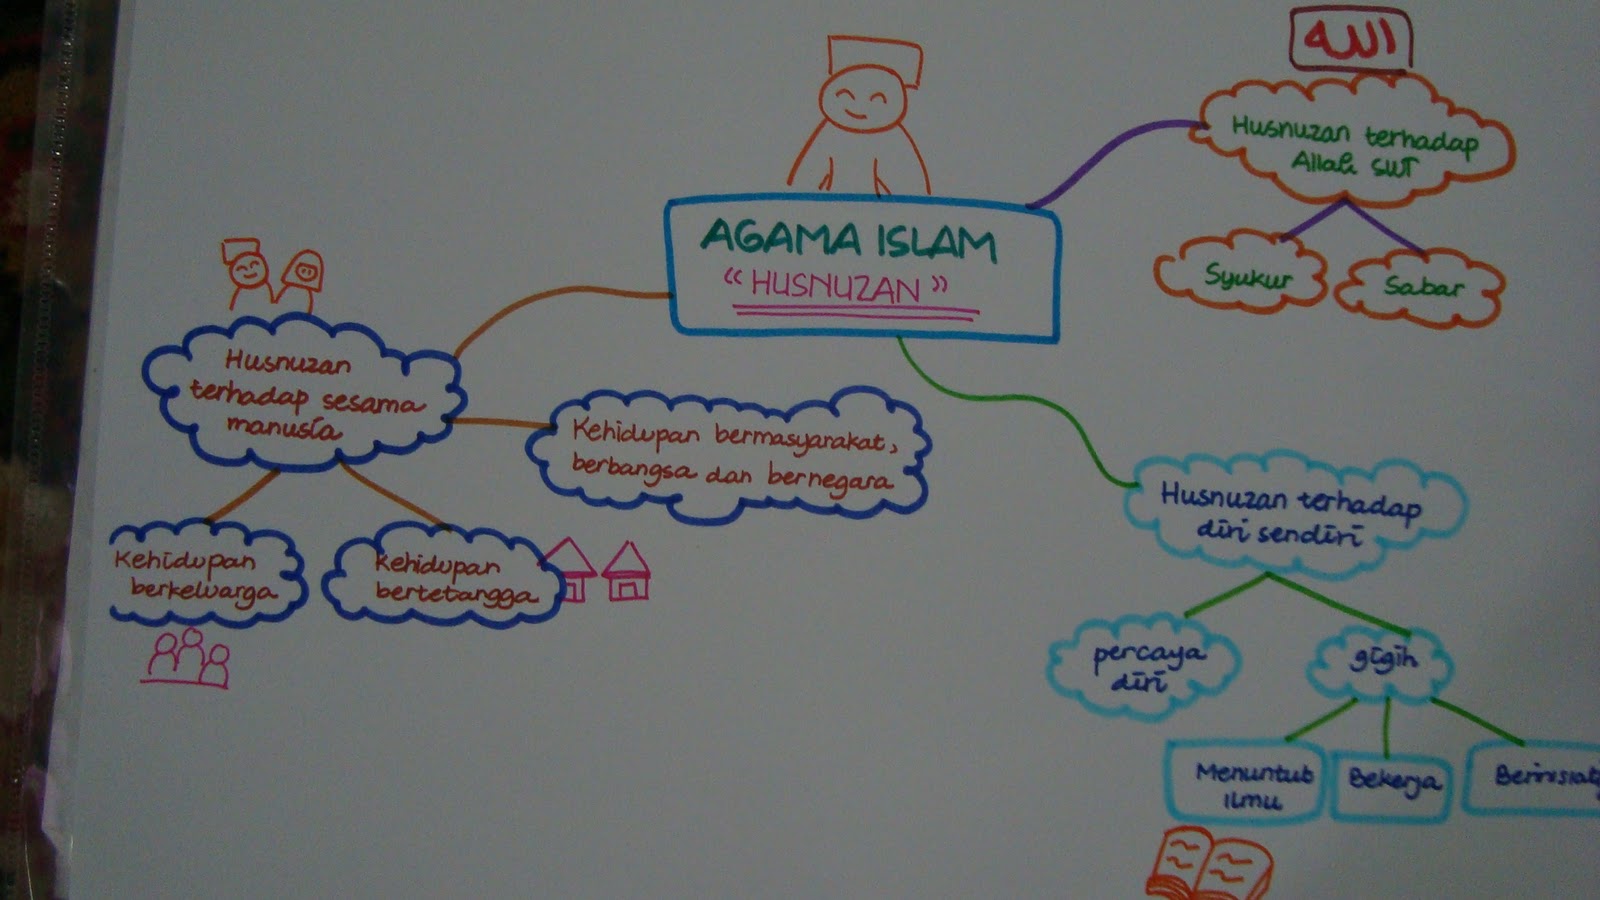 الله
Husnuzan terhadap
Allah SWT
Syukur
Sabar
AGAMA ISLAM
“HUSNUZAN”
Husnuzan
terhadap sesama
manusia
Kehidupan bermasyarakat,
berbangsa dan bernegara
Kehidupan
berkeluarga
Kehidupan
bertetangga
Husnuzan terhadap
diri sendiri
percaya
diri
gigih
Menuntub
ilmu
Bekerja